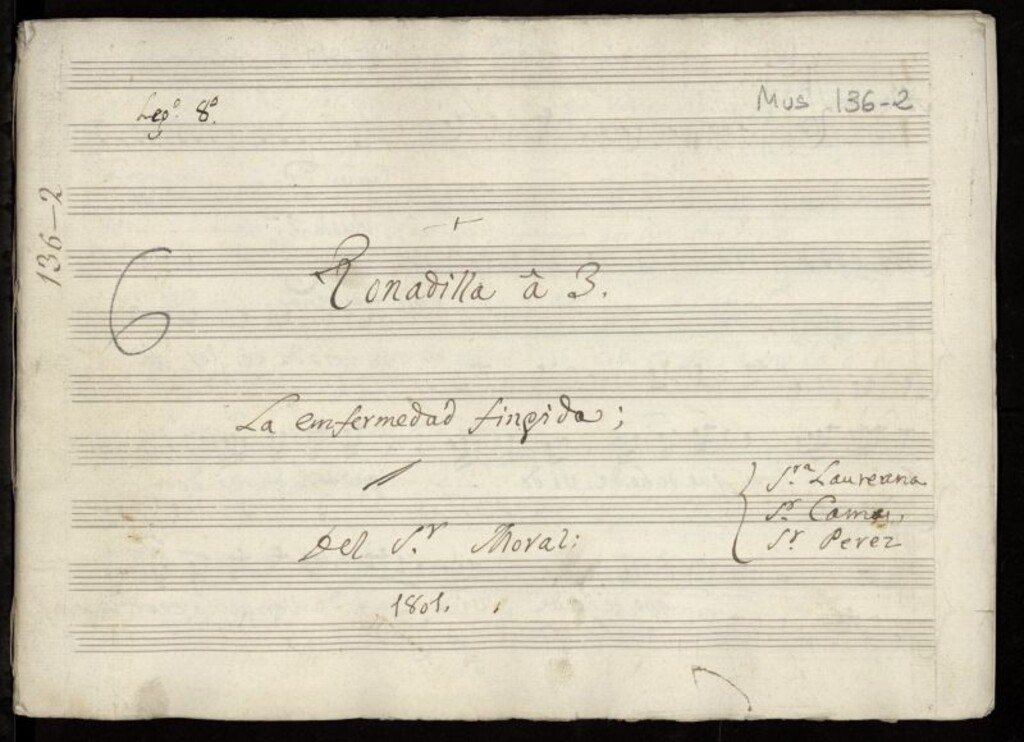 Leg.º 8º
Mus 136-2
136-2
6
Tonadilla â 3.
La enfermedad fingida;
Sra Laureana
Sr Camas,
Sr Perez
Del Sr. Moral;
1801.